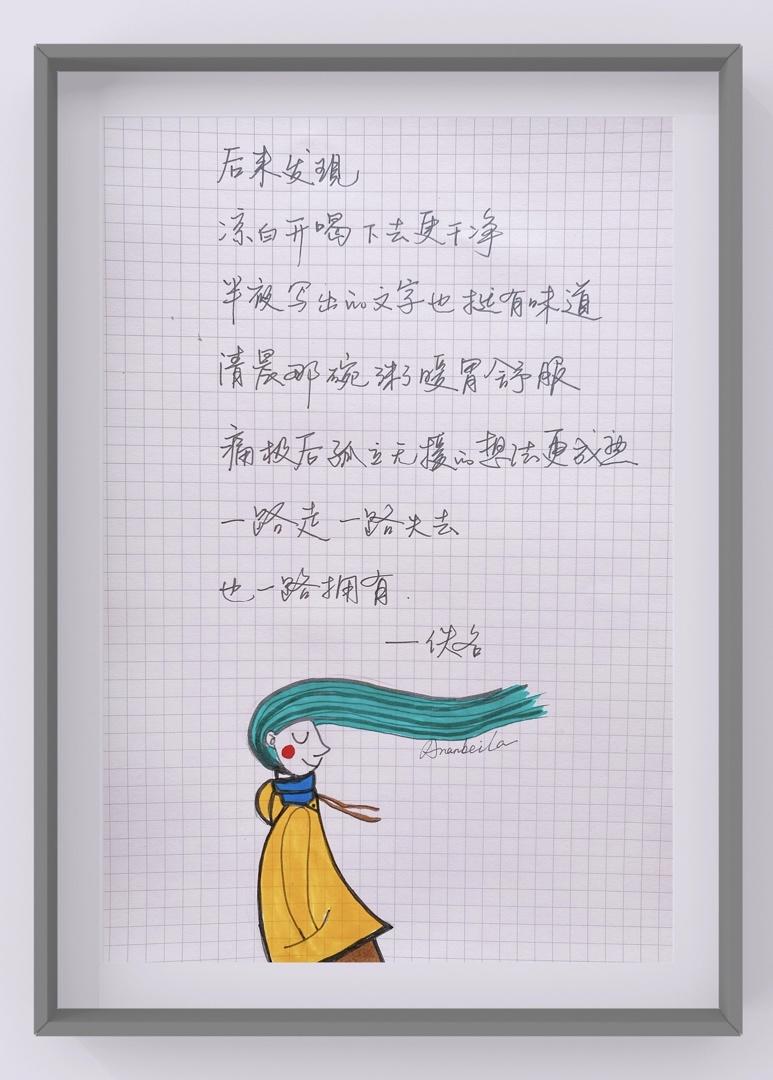 后来发現
凉白开喝下去更干净
半夜写出的文字也挺有味道
清晨那碗粥暖胃舒服
痛极后孤立无援的想法更成熟
一路走一路失去
也一路拥有.
—佚名
Ananbeila